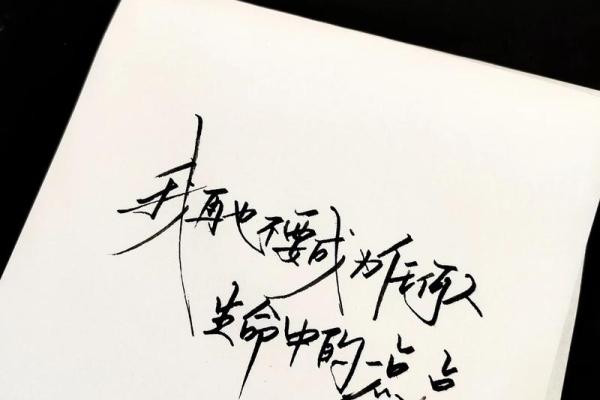 我再也不要成为任何人
生命中的一点点